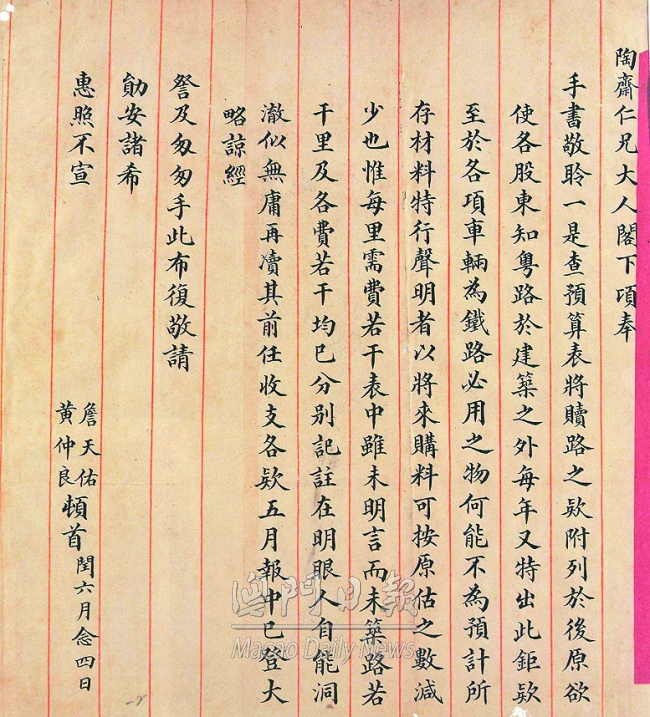 陶齋仁兄大人閣下頃奉
手書敬聆一是查預算表將贖路之欵附列於後原欲
使各股東知粵路於建築之外每年又特出此鉅欵
至於各項車輛為鐵路必用之物何能不為預計所
存材料特行聲明者以將來購料可按原估之數減
少也惟每里需費若干表中雖未明言而未築路若
干里及各費若干均已分別記註在明眼人自能洞
澈似無庸再瀆其前任收支各欵五月報中已登大
略諒經
詧及匆匆手此布復敬請
勛安諸希
惠照不宣
詹天佑
黃仲良 頓首 閏六月念四日
澳門日報
Macao Daily News